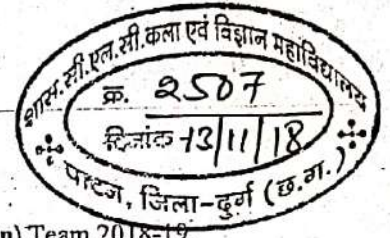 शास. सी.एल.सी.कला एवं विज्ञान महाविद्यालय
क्र. 2507
दिनांक 13/11/18
पाटन, जिला-दुर्ग (छ.ग.)
n) Team 2018-19